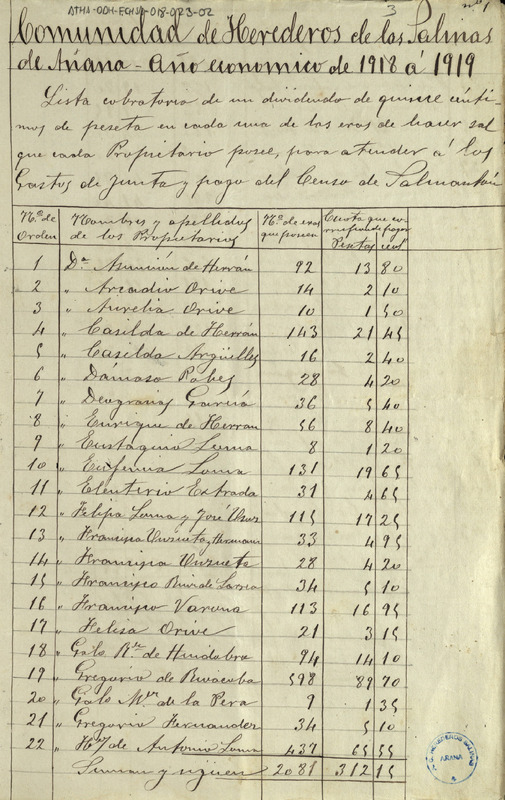 ATHA-DDH-ECHA-018-023-02
3
nº 1
Comunidad de Herederos de las Salinas
de Añana - Año economico de 1918 á 1919
Lista cobratoria de un dividendo de quince cénti-
mos de peseta en cada una de las eras de hacer sal
que cada Propietario posee, para atender á los
Gastos de Junta y pago del Censo de
Nº de Orden Nombres y apellidos de los Propietarios Nº de eras que poseen Cuota que corresponde pagar Pesetas cents
1 Dª Asunción de Herrán 92 13 80
2 " Arcadio Orive 14 2 10
3 " Aurelia Orive 10 1 50
4 " Casilda de Herrán 143 21 45
5 " Casilda Argüelles 16 2 40
6 " Dámaso Pobes 28 4 20
7 " Deogracias García 36 5 40
8 " Enrique de Herrán 56 8 40
9 " Eustaquio Loma 8 1 20
10 " Eufemia Loma 131 19 65
11 " Eleuterio Estrada 31 4 65
12 " Felipa Loma y José 115 17 25
13 " Francisca y Herman 33 4 95
14 " Francisca 28 4 20
15 " Francisco Ruiz de 34 5 10
16 " Francisco Varona 113 16 95
17 " Felisa Orive 21 3 15
18 " Galo Rz. de Huidobro 94 14 10
19 " Gregorio de 598 89 70
20 " Galo de la Pera 9 1 35
21 " Gregorio Fernandez 34 5 10
22 " de Antonio Loma 437 65 55
Suman y siguen 2081 312 15
AÑANA